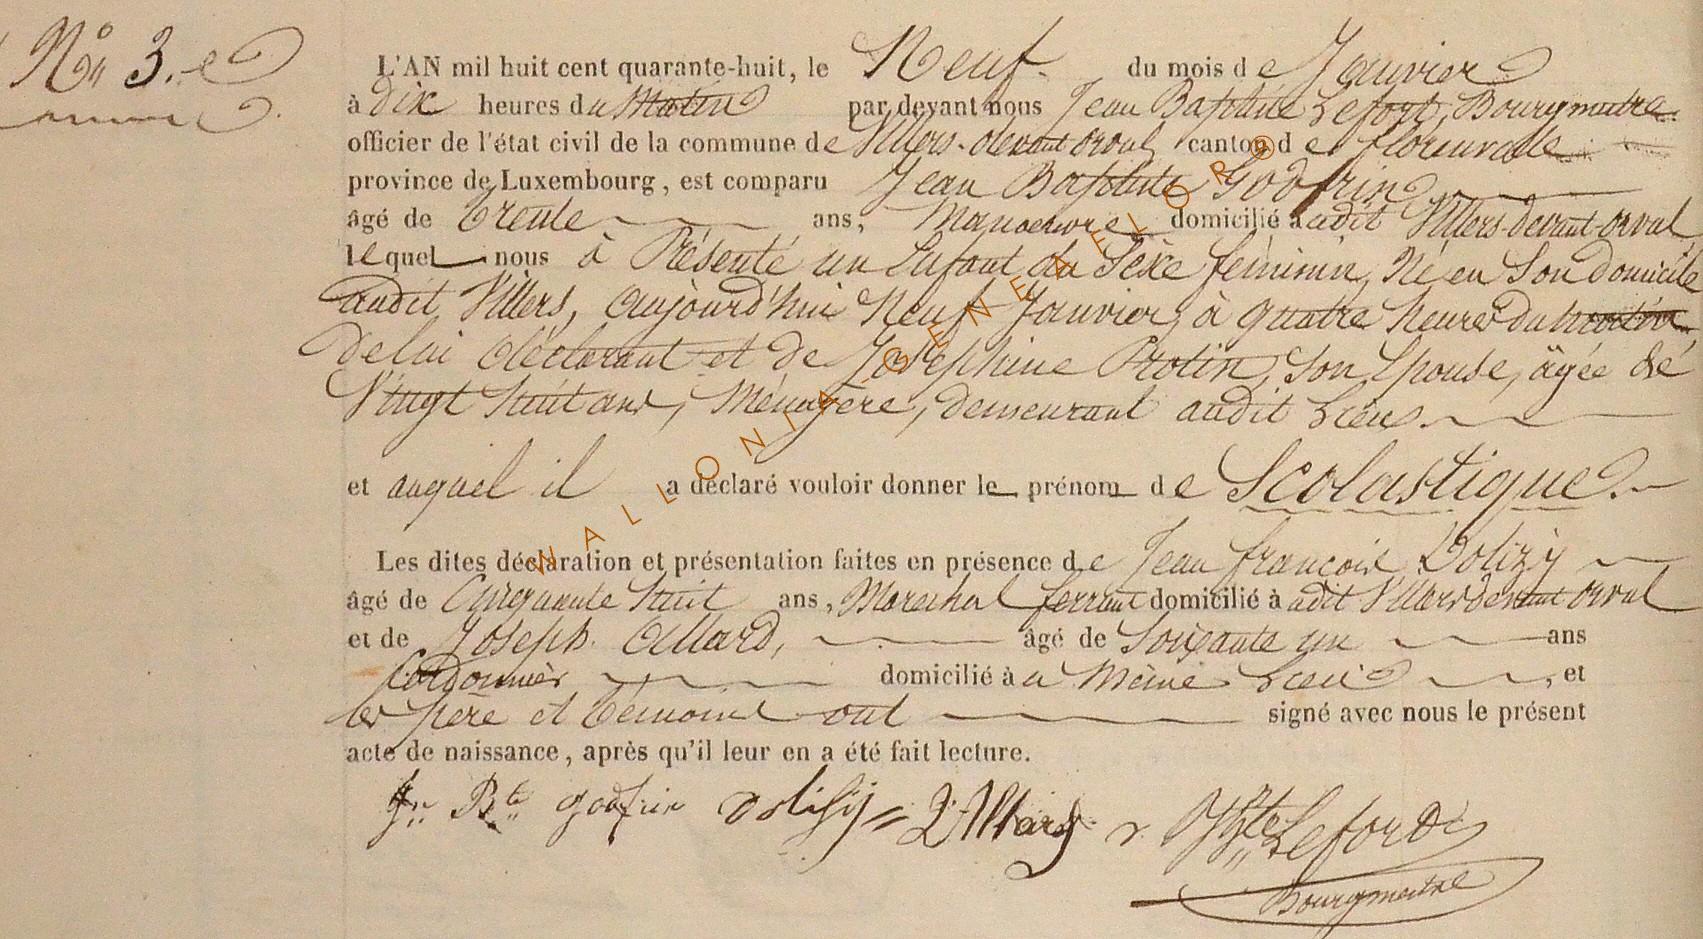 N° 3.
L'AN mil huit cent quarante-huit, le Neuf du mois de Janvier
à dix heures du Matin par devant nous Jean Baptiste Lefort, Bourgmestre
officier de l'état civil de la commune de Villers-devant orval, canton de florenville
province de Luxembourg, est comparu Jean Baptiste Godfrin
âgé de Trente ans, Manoeuvre domicilié audit Villers-devant-orval
lequel nous à Présenté un Enfant du Sèxe féminin, Né en Son domicile
audit Villers, aujourd'hui Neuf Janvier, à quatre heures du matin,
de lui déclarant et de Joséphine Protin, Son Epouse, âgée dé
Vingt huit ans, Ménagère, demeurant audit Lieu.
et auquel il a déclaré vouloir donner le prénom de Scolastique.
Les dites déclaration et présentation faites en présence de Jean françois Dolizy
âgé de Cinquante huit ans, Marechal ferrant domicilié à adit Villers devant orval
et de Joseph Allard, âgé de Soixante un ans
Cordonnier domicilié à u Même Lieu, et
les père et témoins ont signé avec nous le présent
acte de naissance, après qu'il leur en a été fait lecture.
Jn Bte godfrin dolisy J Allard JBte Lefort
Bourgmestre
WALLONIA-GENEALOR®